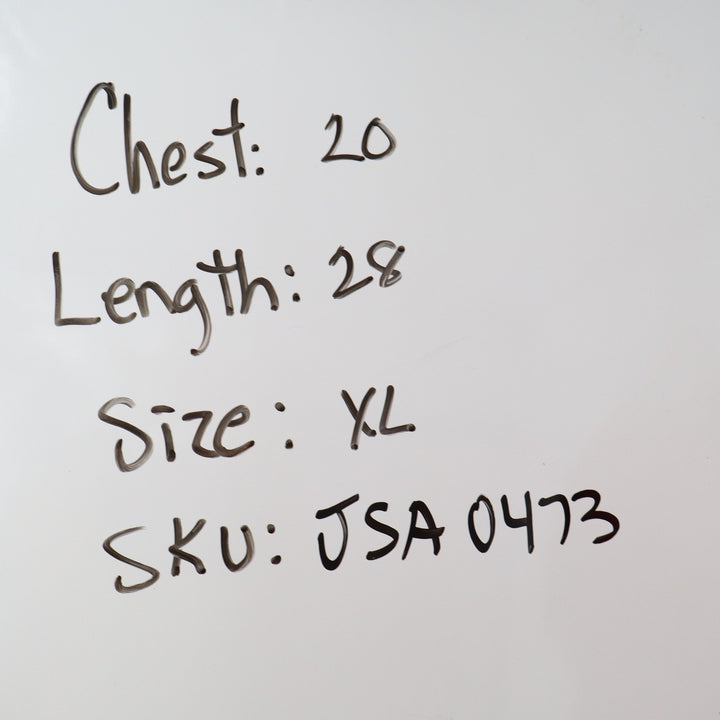 Chest: 20
Length: 28
Size: XL
SKU: JSA 0473